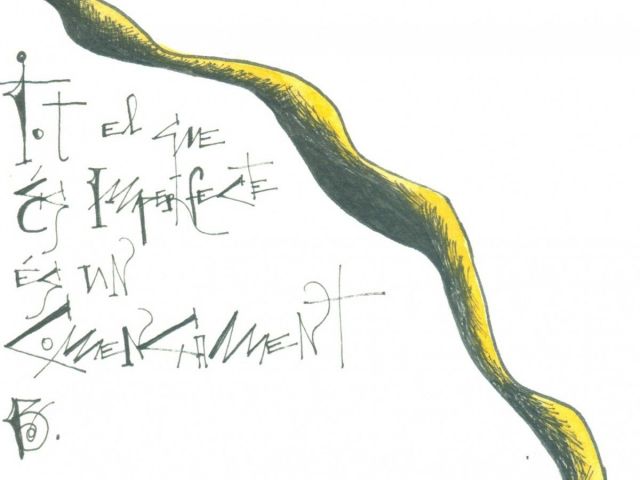 Tot el que
és Imperfecte
és un
Començament